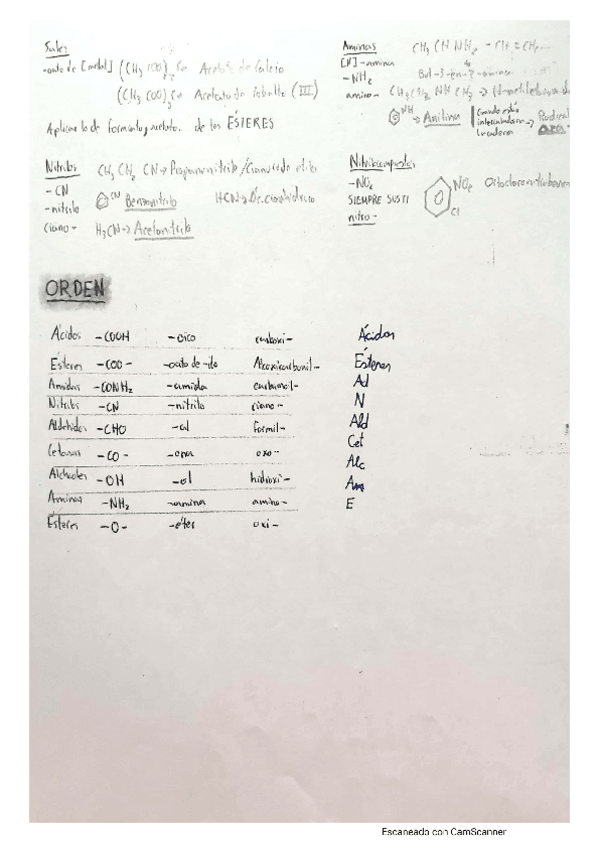 Sales
-oato de [metal] (CH3 COO)2 Ca Acetato de Calcio
(CH3 COO)3 Co Acetato de Cobalto (III)
Aplicar lo de formiato y acetato. de los ÉSTERES
Aminas
[N] -amina
-NH2
amino-
CH3 CH NH2
But-3-en-2-amina
NH → Anilina
Cuando está
intercalado en
la cadena
→ Radical
Nitrilos
-CN
-nitrilo
ciano-
CH3 CH2 CN → Propanonitrilo / Cianuro de etilo
CN Benzonitrilo HCN →
H3CN → Acetonitrilo
Nitrocompuestos
-NO2
SIEMPRE SUSTI
nitro-
NO2
Cl
ORDEN
Ácidos -COOH -oico carboxi- Ácidos
Ésteres -COO- -oato de -ilo Alcoxicarbonil- Ésteres
Amidas -CONH2 -amida carbamoil- Ad
Nitrilos -CN -nitrilo ciano- N
Aldehídos -CHO -al formil- Ald
Cetonas -CO- -ona oxo- Cet
Alcholes -OH -ol hidroxi- Alc
Aminas -NH2 -amina amino- Am
Ésteres -O- -éter oxi- E
Escaneado con CamScanner